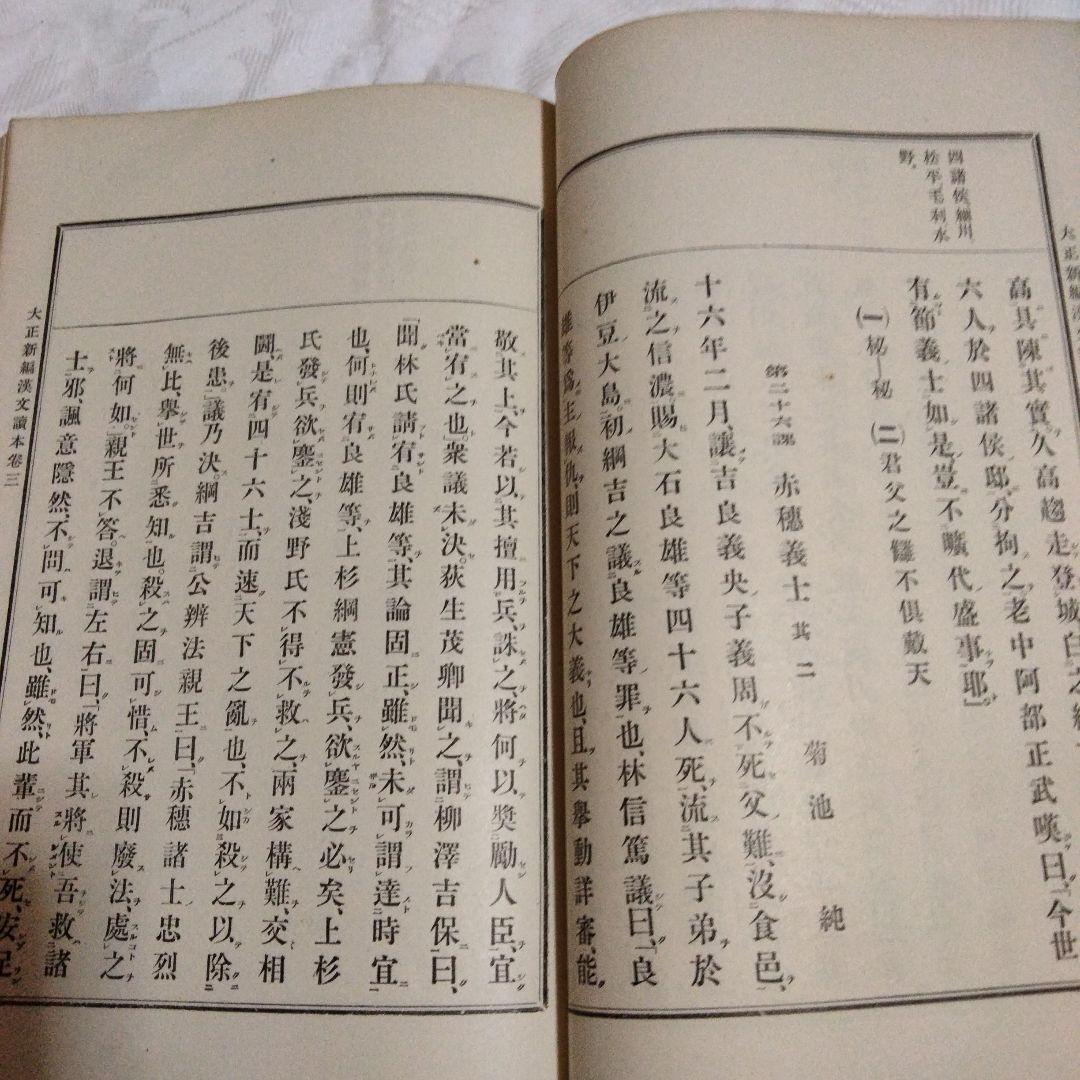 大正新編漢
四諸侯、細川、
松平、毛利、水
野。
高具陳其實、久高趨走登城白之
六人於四諸侯邸、分拘之、老中阿部正武嘆曰、「今世
有節義士如是、豈不曠代盛事耶」
(一)秘—秘 (二)君父之讎不俱戴天
第二十六課 赤穗義士 其二 菊池 純
十六年二月、讓吉良義央子義周不死父難、沒食邑、
流之信濃、賜大石良雄等四十六人死、流其子弟於
伊豆大島。初綱吉之議良雄等罪也、林信篤議曰、「良
雄等爲主報仇、則天下之大義也、且其擧動詳審、能
敬其上、今若以其擅用兵、誅之、將何以奬勵人臣、宜
當宥之也。衆議未決。荻生茂卿聞之、謂柳澤吉保曰、
「聞林氏請宥良雄等、其論固正、雖然、未可謂達時宜
也、何則宥良雄等、上杉綱憲發兵、欲鏖之必矣、上杉
氏發兵欲鏖之、淺野氏不得不救之、兩家構難、交相
鬪、是宥四十六士、而速天下之亂也、不如殺之以除
後患」議乃決。綱吉謂公辨法親王曰、「赤穗諸士忠烈
無比、擧世所悉知也。殺之固可惜、不殺則廢法、處之
將何如。」親王不答。退謂左右曰、「將軍其將使吾救諸
士邪、諷意隱然、不問可知也、雖然、此輩而不死、安足
大正新編漢文讀本卷三